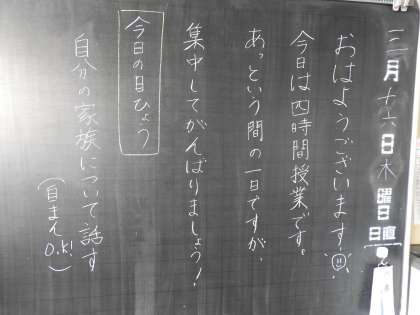 三月十六日木曜日
日直
おはようございます!
今日は四時間授業です。
あっという間の一日ですが、
集中してがんばりましょう!
今日の目ひょう
自分の家族について話す
(自まんO.K!)